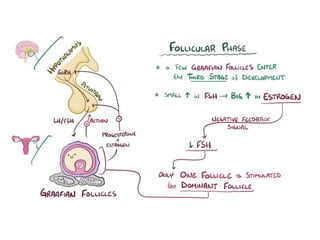 HYPOTHALAMUS
GnRH
PITUITARY
LH/FSH
ACTION
PROGESTERONE
+
ESTROGEN
GRAAFIAN FOLLICLES
FOLLICULAR PHASE
* A FEW GRAAFIAN FOLLICLES ENTER
the THIRD STAGE of DEVELOPMENT
* SMALL ↑ in FSH → BIG ↑ in ESTROGEN
NEGATIVE FEEDBACK
SIGNAL
↓ FSH
ONLY ONE FOLLICLE is STIMULATED
the DOMINANT FOLLICLE